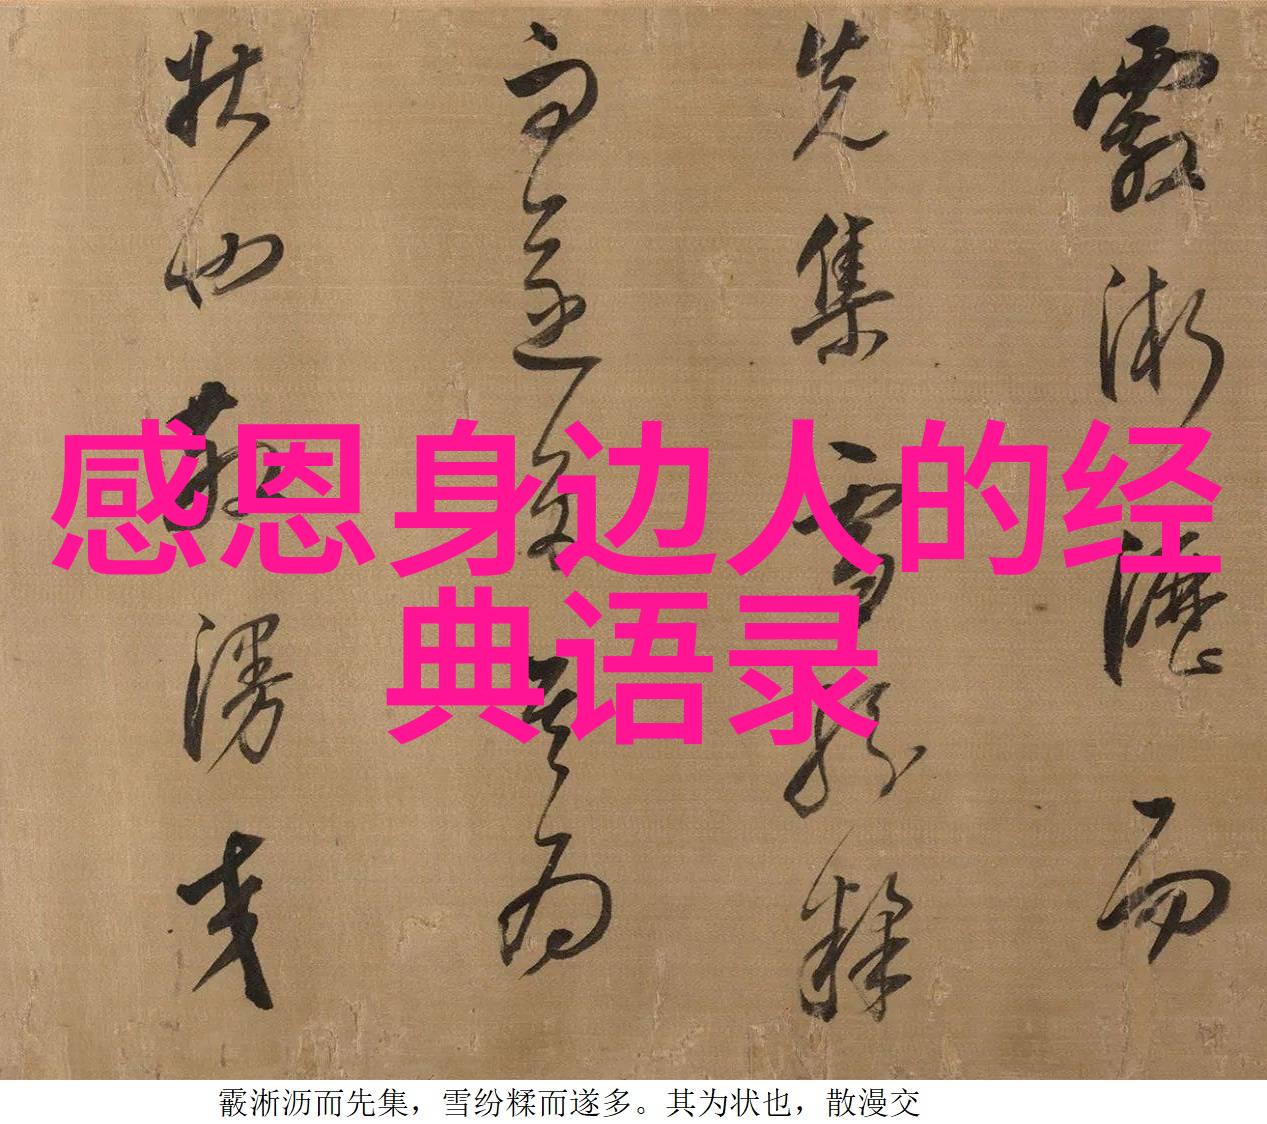 霰淅瀝而
先集雪紛糅
而遂多其為
狀也散漫交
感恩身边人的经
典语录
霰淅沥而先集，雪纷糅而遂多。其为状也，散漫交